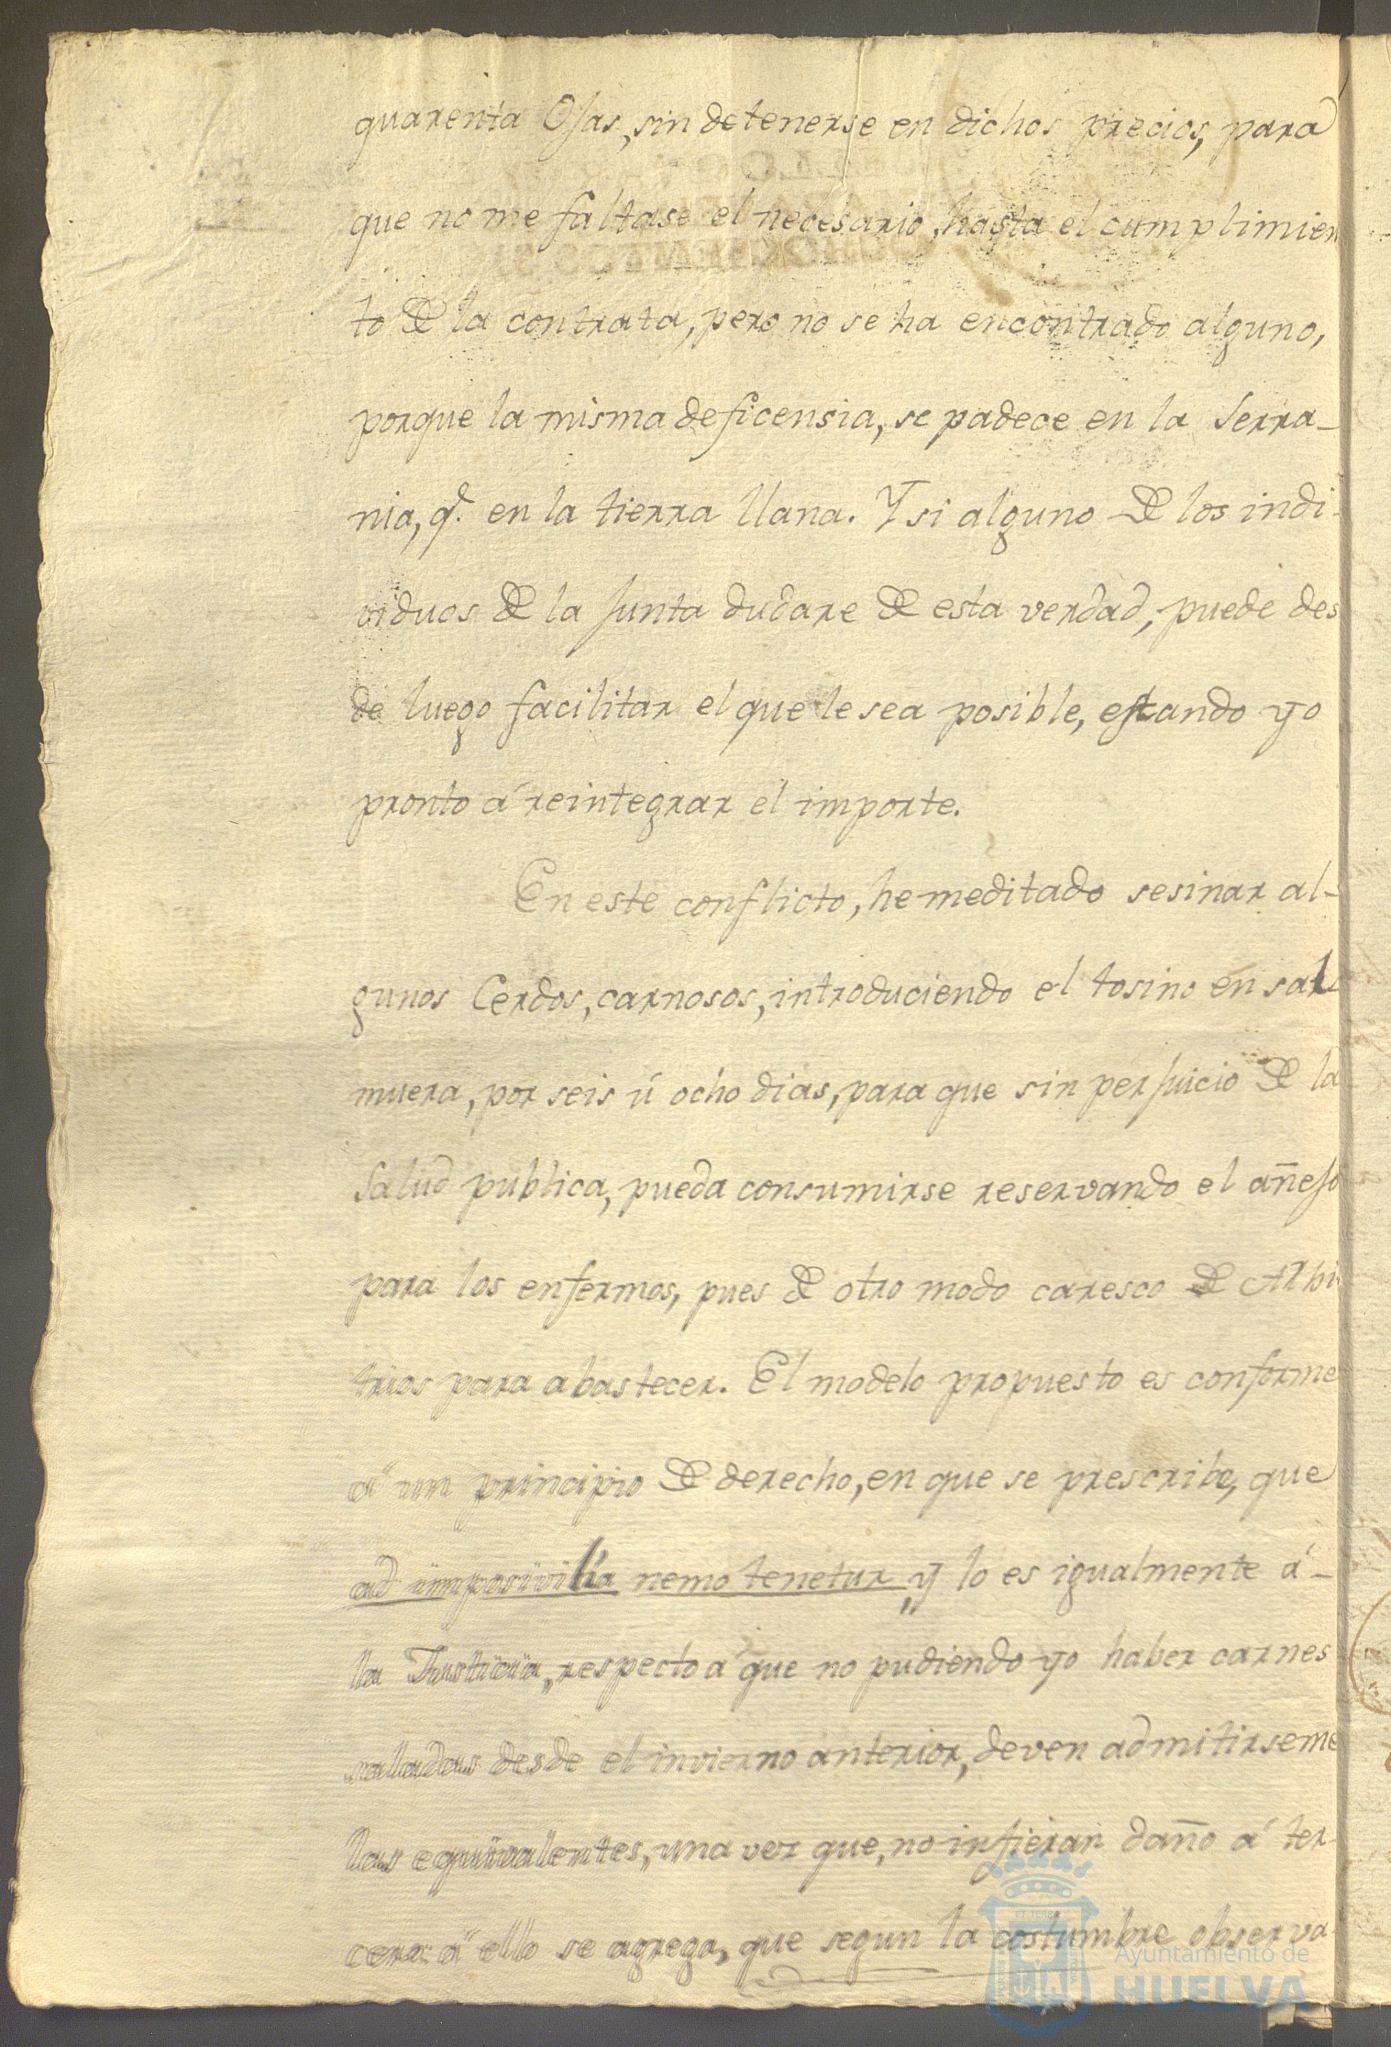 quarenta Ojas, sin detenerse en dichos precios, para
que no me faltase el necesario, hasta el cumplimien
to de la contrata, pero no se ha encontrado alguno,
porque la misma deficensia, se padece en la Serra-
nia, q.e en la tierra llana. Y si alguno de los indi-
viduos de la Junta dudare de esta verdad, puede des
de luego facilitar el que le sea posible, estando yo
pronto á reintegrar el importe.
En este conflicto, he meditado sesinar al-
gunos Cerdos, carnosos, introduciendo el tosino en sal
muera, por seis ú ocho dias, para que sin perjuicio de la
Salud publica, pueda consumirse reservando el añejo
para los enfermos, pues de otro modo caresco de Arbi
trios para abastecer. El modelo propuesto es conforme
a un principio de derecho, en que se prescribe, que
ad imposivilia nemo tenetur y lo es igualmente á-
la Justicia, respecto a que no pudiendo yo haber carnes
saladas desde el invierno anterior, deven admitirseme
las equivalentes, una vez que, no infieran daño á ter-
cero: á ello se agrega, que segun la costumbre observa-
Ayuntamiento de
HUELVA